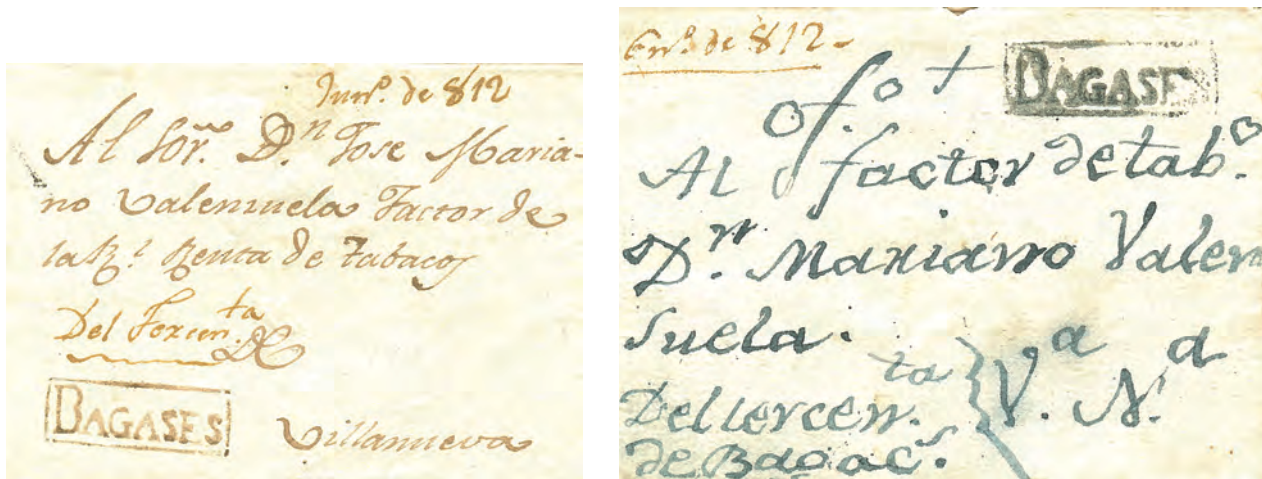 Jun.º de 812
Al Sor. D.n Jose Maria-
no Valenzuela Factor de
la R.l Renta de tabacos
Del Tercen.ta
BAGASES
Villanueva
En.º de 812-
BAGASES
of.o +
Al factor de tab.o
D.n Mariano Valen
suela.
Del tercen.ta } V.a N.a
de Bagac.s